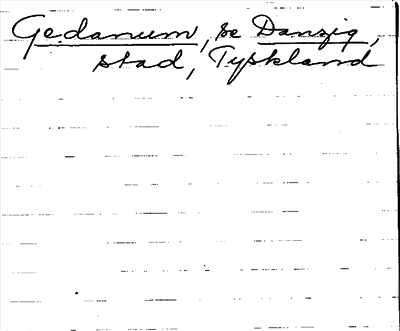 Gedanum, se Danzig,
stad, Tyskland